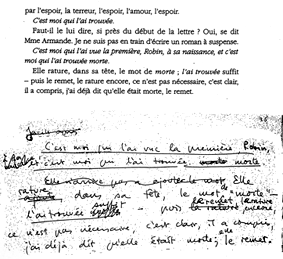 par l'espoir, la terreur, l'espoir, l'amour, l'espoir.
C'est moi qui l'ai trouvée.
Faut-il le lui dire, si près du début de la lettre ? Oui, se dit
Mme Armande. Je ne suis pas en train d'écrire un roman à suspense.
C'est moi qui l'ai vue la première, Robin, à sa naissance, et c'est
moi qui l'ai trouvée morte.
Elle rature, dans sa tête, le mot de morte ; l'ai trouvée suffit
– puis le remet, le rature encore, ce n'est pas nécessaire, c'est clair,
il a compris, j'ai déjà dit qu'elle était morte, le remet.
C'est moi qui l'ai vue la première, Robin,
et c'est moi qui l'ai trouvée morte
Elle
rature dans sa tête, le mot de "morte" –
l'ai trouvée suffit – puis le remet, le rature encore,
ce n'est pas nécessaire, c'est clair, il a compris,
j'ai déjà dit qu'elle était morte, le remet.